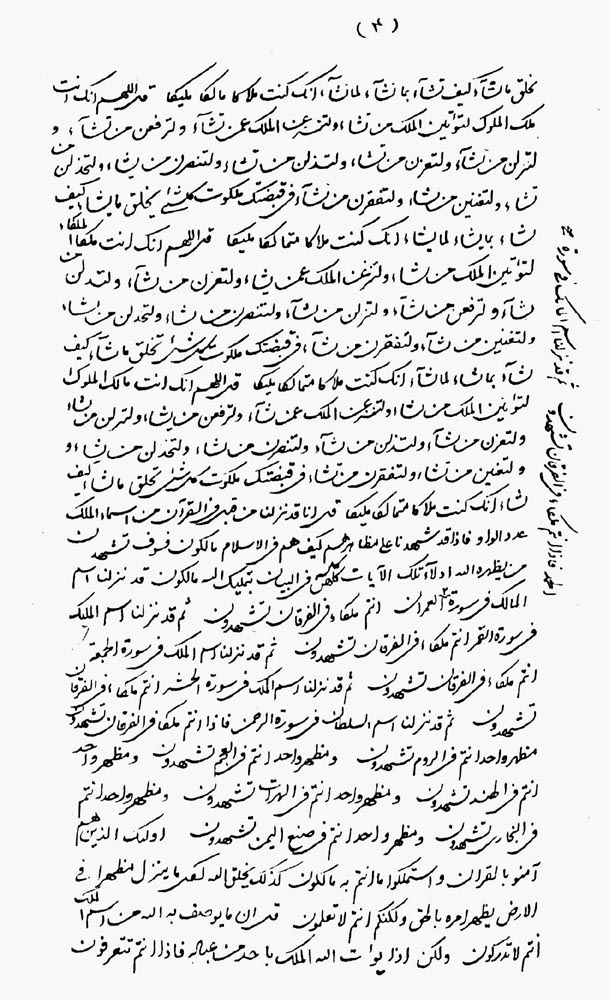 (٣)
تخلق ما تشآء كيف تشآء بما تشآء لما تشآء انك كنت ملاكا مالكا مليكا قل اللهم انك انت
ملك الملوك لتوأتين الملك من تشآء ولتنزعن الملك عمن تشآء ولترفعن من تشآء و
لتنزلن من تشآء ولتعزن من تشآء ولتذلن من تشآء ولتنصرن من تشآء ولتخذلن من
تشآء ولتغنين من تشآء ولتفقرن من تشآء في قبضتك ملكوت كلشئ تخلق ما تشآء كيف
تشآء بما تشآء لما تشآء انك كنت ملاكا متمالكا مليكا قل اللهم انك انت ملكا الملكآء
لتوأتين الملك من تشآء ولتنزعن الملك عمن تشآء ولتعزن من تشآء ولتذلن من
تشآء ولترفعن من تشآء ولتنزلن من تشآء ولتنصرن من تشآء ولتخذلن من تشآء
ولتغنين من تشآء ولتفقرن من تشآء في قبضتك ملكوت كلشئ تخلق ما تشآء كيف
تشآء بما تشآء لما تشآء انك كنت ملاكا متمالكا مليكا قل اللهم انك انت مالك الملوك
لتوأتين الملك من تشآء ولتنزعن الملك عمن تشآء ولترفعن من تشآء ولتنزلن من تشآء
ولتعزن من تشآء ولتذلن من تشآء ولتنصرن من تشآء ولتخذلن من تشآء و
ولتغنين من تشآء ولتفقرن من تشآء في قبضتك ملكوت كلشئ تخلق ما تشآء كيف
تشآء انك كنت ملاكا متمالكا مليكا قل انا قد نزلنا من قبل في القرآن من اسمآء الملك
عدد الواو فاذا قد شهدنا على مظاهرهم كيف هم في الاسلام مالكون فسوف تشهدن
من يظهره الله اولآء تلك الآيات كلهن في البيان بتمليك الله مالكون قد نزلنا اسم
المالك في سورة آل عمران انتم ملكآء في الفرقان تشهدون ثم قد نزلنا اسم المليك
في سورة القمر انتم ملكآء في الفرقان تشهدون ثم قد نزلنا اسم الملك في سورة الجمعة
انتم ملكآء في الفرقان تشهدون ثم قد نزلنا اسم الملك في سورة الحشر انتم ملكآء في الفرقان
تشهدون ثم قد نزلنا اسم السلطان في سورة الرحمن فاذا انتم ملكآء في الفرقان تشهدون
مظهر واحد انتم في الروم تشهدون ومظهر واحد انتم في العجم تشهدون ومظهر واحد
انتم في الهند تشهدون ومظهر واحد انتم في الهرات تشهدون ومظهر واحد انتم
في البخارى تشهدون ومظهر واحد انتم في صنع اليمن تشهدون اولئك الذين هم
آمنو بالقران و استملكوا ما انتم به مالكون كذلك يخلق الله لكل ما ينزل مظهرا في
الارض يظهر امره بالحق ولكنكم انتم لا تعلون قل ان ما يوصف به الله من اسم الملك
انتم لا تدركون ولكن اذا يوأت الله الملك باحد من عباده فاذا انتم تتعرفون
ثم قد نزلنا اسم المالك في سورة
الحمد فاذا انتم ملكآء في الفرقان تشهدون